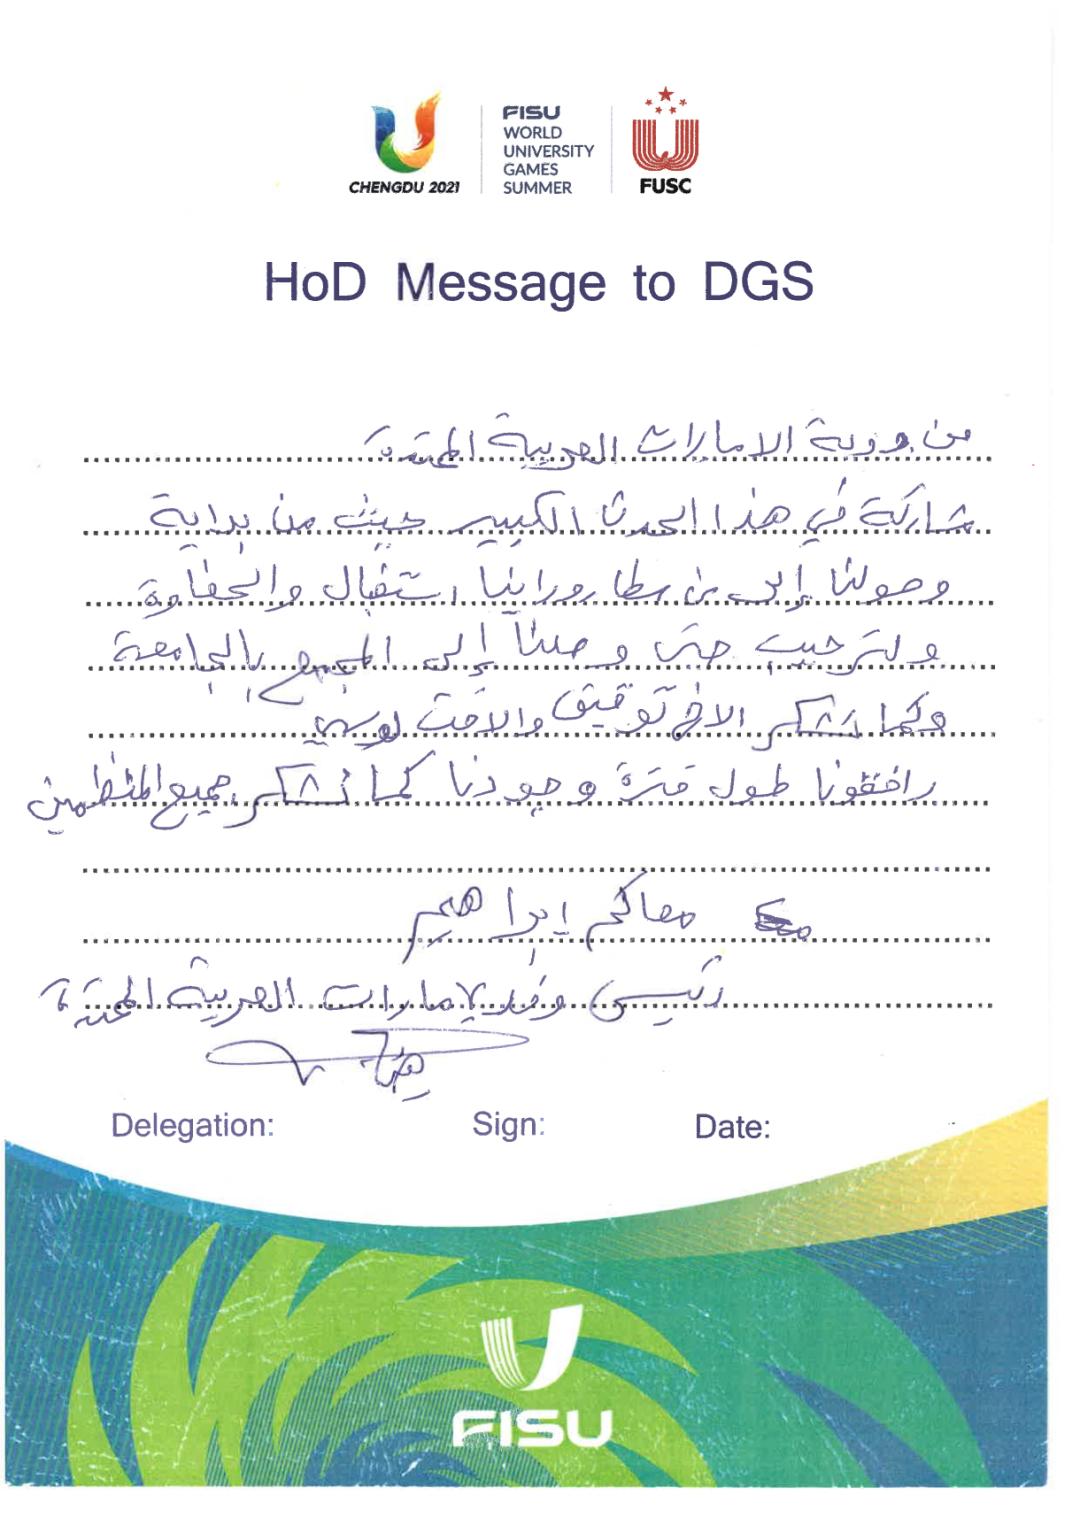 CHENGDU 2021
FISU
WORLD
UNIVERSITY
GAMES
SUMMER
FUSC
HoD Message to DGS
من دولة الامارات العربية المتحدة
مشاركة في هذا الحدث الكبير حيث من بداية
وصولنا إلى من مطار وراينا استقبال والحفاوة
ولترحيب حتى وصلنا إلى المجمع بالجامعة
وكما نشكر الاخ توفيق والاخت
رافقونا طول فترة وجودنا كما نشكر جميع المنظمين
إبراهيم
رئيس وفد لإمارات العربية المتحدة
Delegation:
Sign:
Date:
FISU